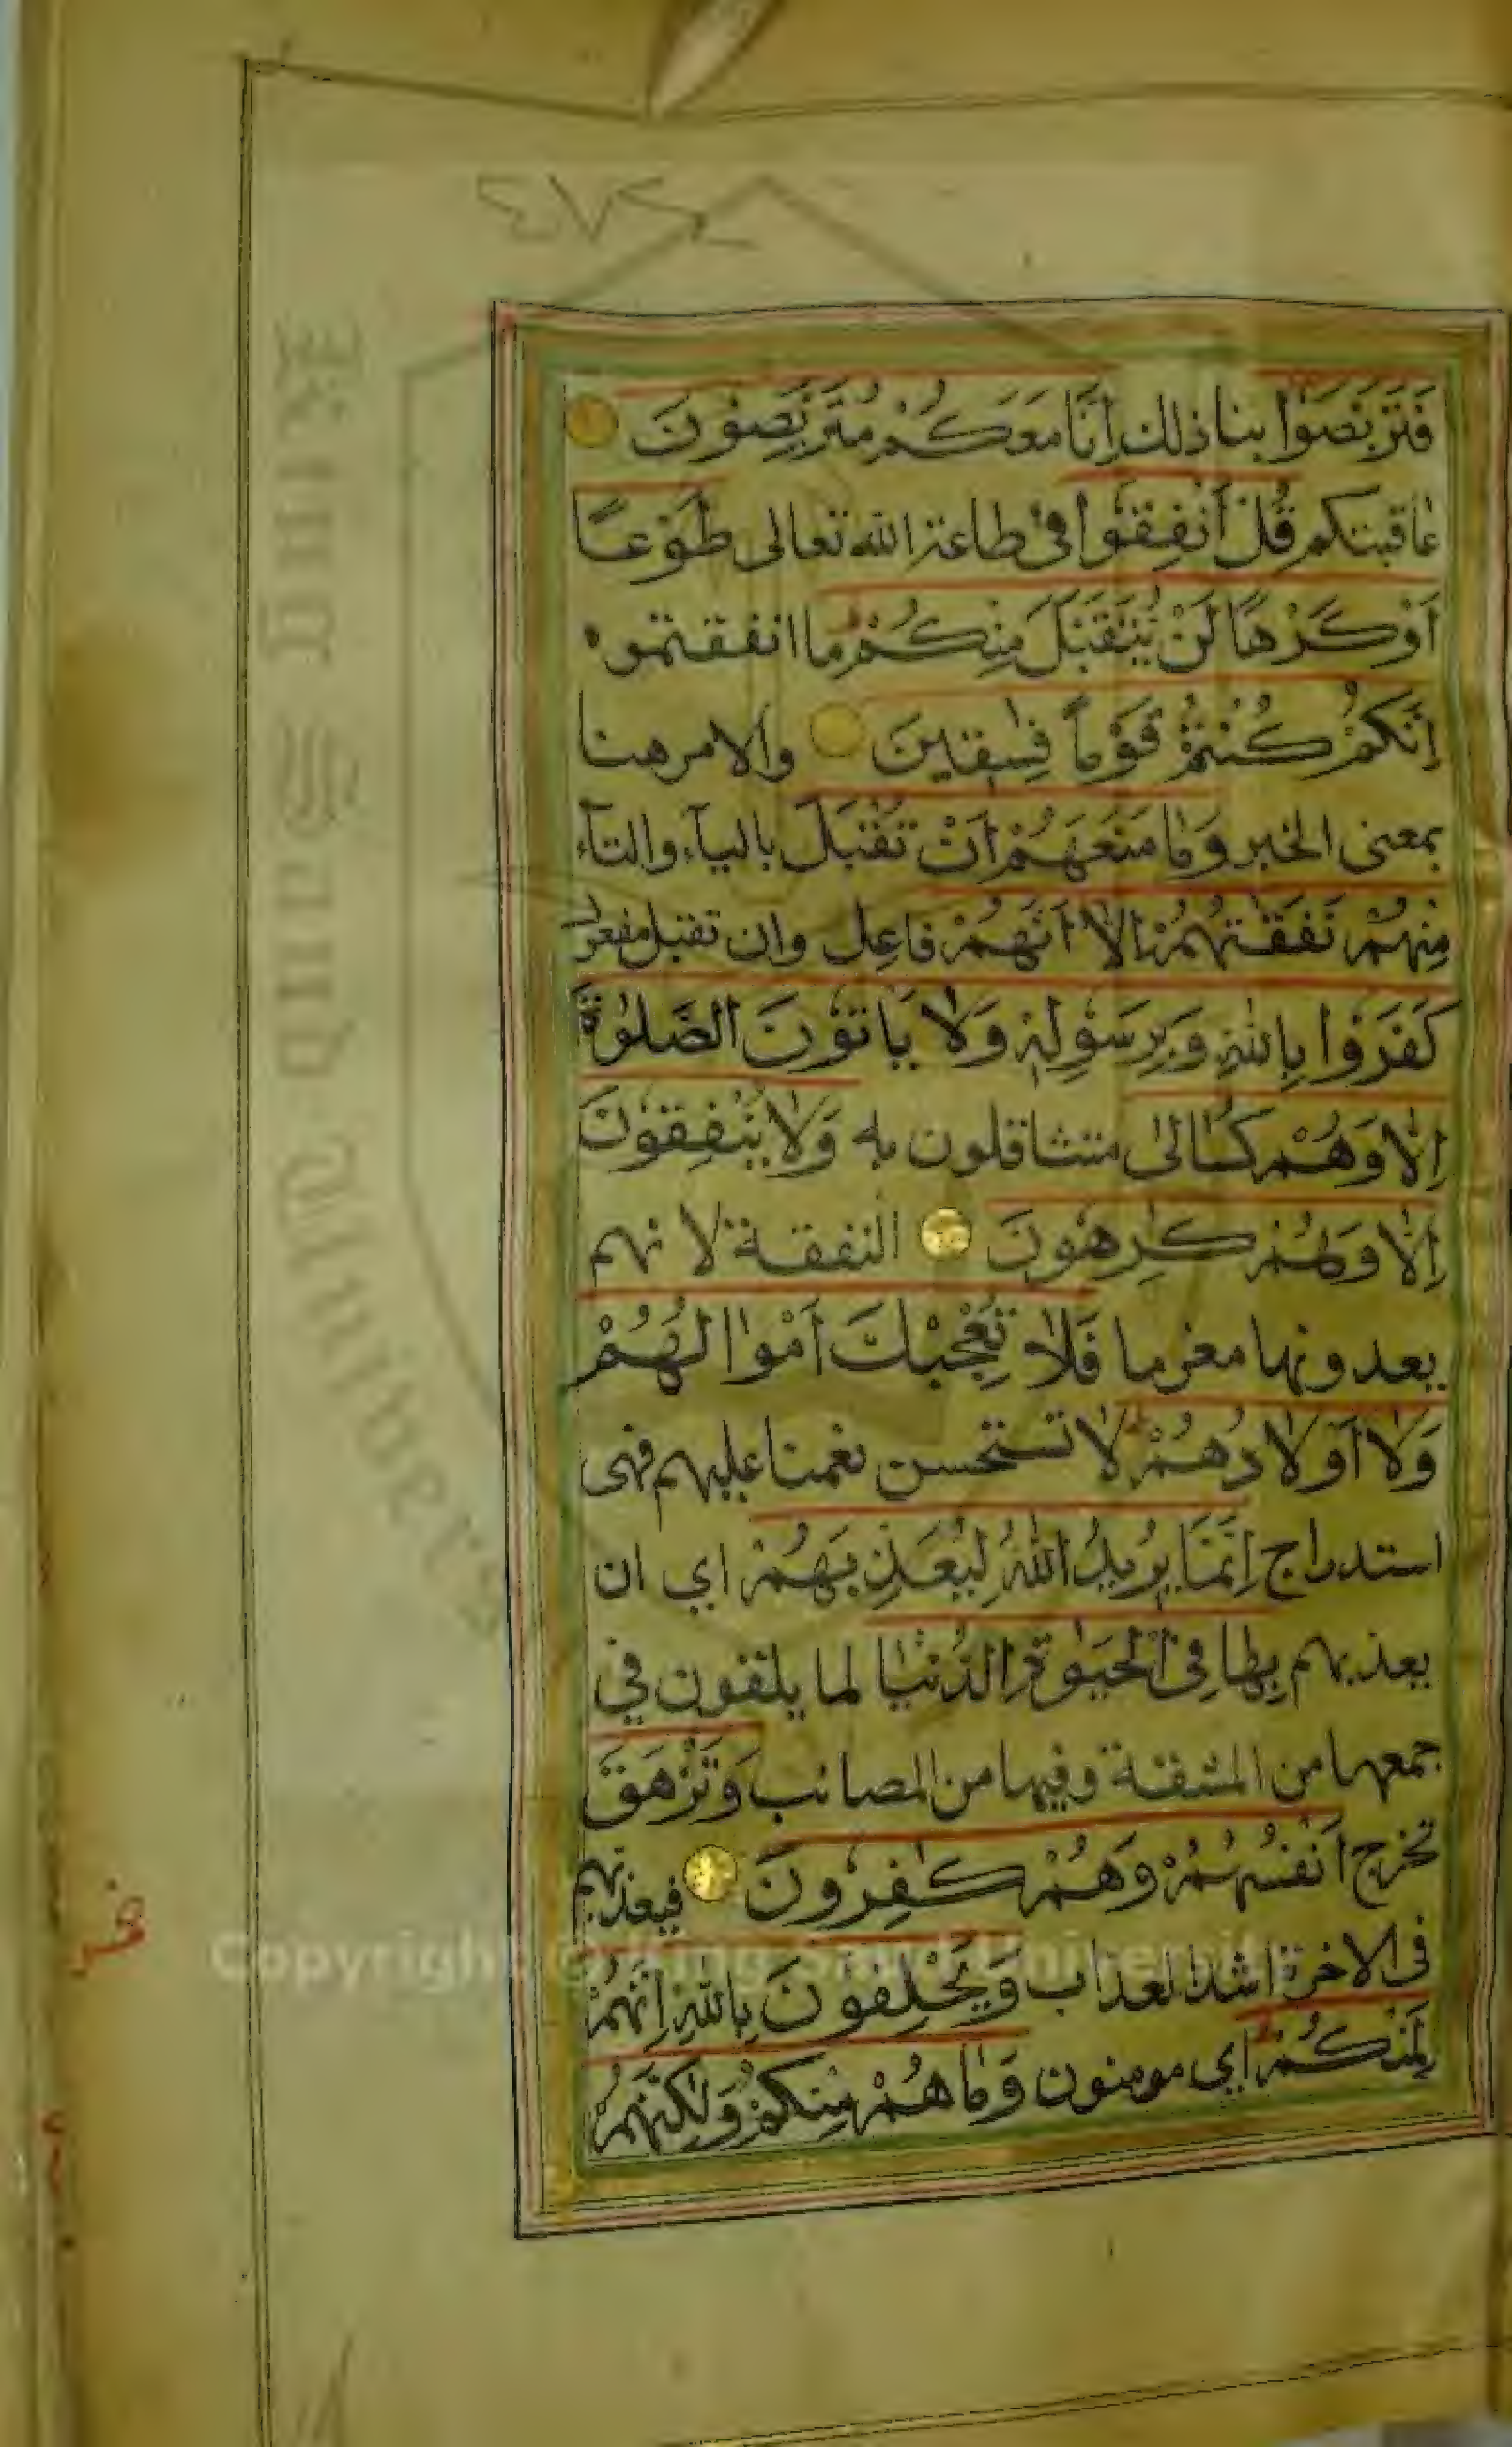 ٤٧٢
فَتَرَبَّصُوْا بنا ذلك اِنَّا مَعَكُمْ مُتَرَبِّصُوْنَ
عاقبتكم قُلْ اَنْفِقُوْا في طاعة الله تعالى طَوْعًا
اَوْ كَرْهًا لَنْ يُتَقَبَّلَ مِنْكُمْ ما انفقتموه
اِنَّكُمْ كُنْتُمْ قَوْمًا فٰسِقِيْنَ والامر هنا
بمعنى الخبر وَمَا مَنَعَهُمْ اَنْ تُقْبَلَ بالياء والتاء
مِنْهُمْ نَفَقٰتُهُمْ اِلَّا اَنَّهُمْ فاعل وان تقبل مفعول
كَفَرُوْا بِاللّٰهِ وَبِرَسُوْلِهٖ وَلَا يَاْتُوْنَ الصَّلٰوةَ
اِلَّا وَهُمْ كُسَالٰى متثاقلون به وَلَا يُنْفِقُوْنَ
اِلَّا وَهُمْ كٰرِهُوْنَ النفقة لانهم
يعدونها مغرما فَلَا تُعْجِبْكَ اَمْوَالُهُمْ
وَلَا اَوْلَادُهُمْ لا تستحسن نعمنا عليهم فهى
استدراج اِنَّمَا يُرِيْدُ اللّٰهُ لِيُعَذِّبَهُمْ اي ان
يعذبهم بِهَا فِي الْحَيٰوةِ الدُّنْيَا لما يلقون في
جمعها من المشقة وفيها من المصائب وَتَزْهَقَ
تخرج اَنْفُسُهُمْ وَهُمْ كٰفِرُوْنَ فيعذبهم
فى الاخرة اشد العذاب وَيَحْلِفُوْنَ بِاللّٰهِ اِنَّهُمْ
لَمِنْكُمْ اي مومنون وَمَا هُمْ مِنْكُمْ وَلٰكِنَّهُمْ
King Saud University
Copyright © King Saud University